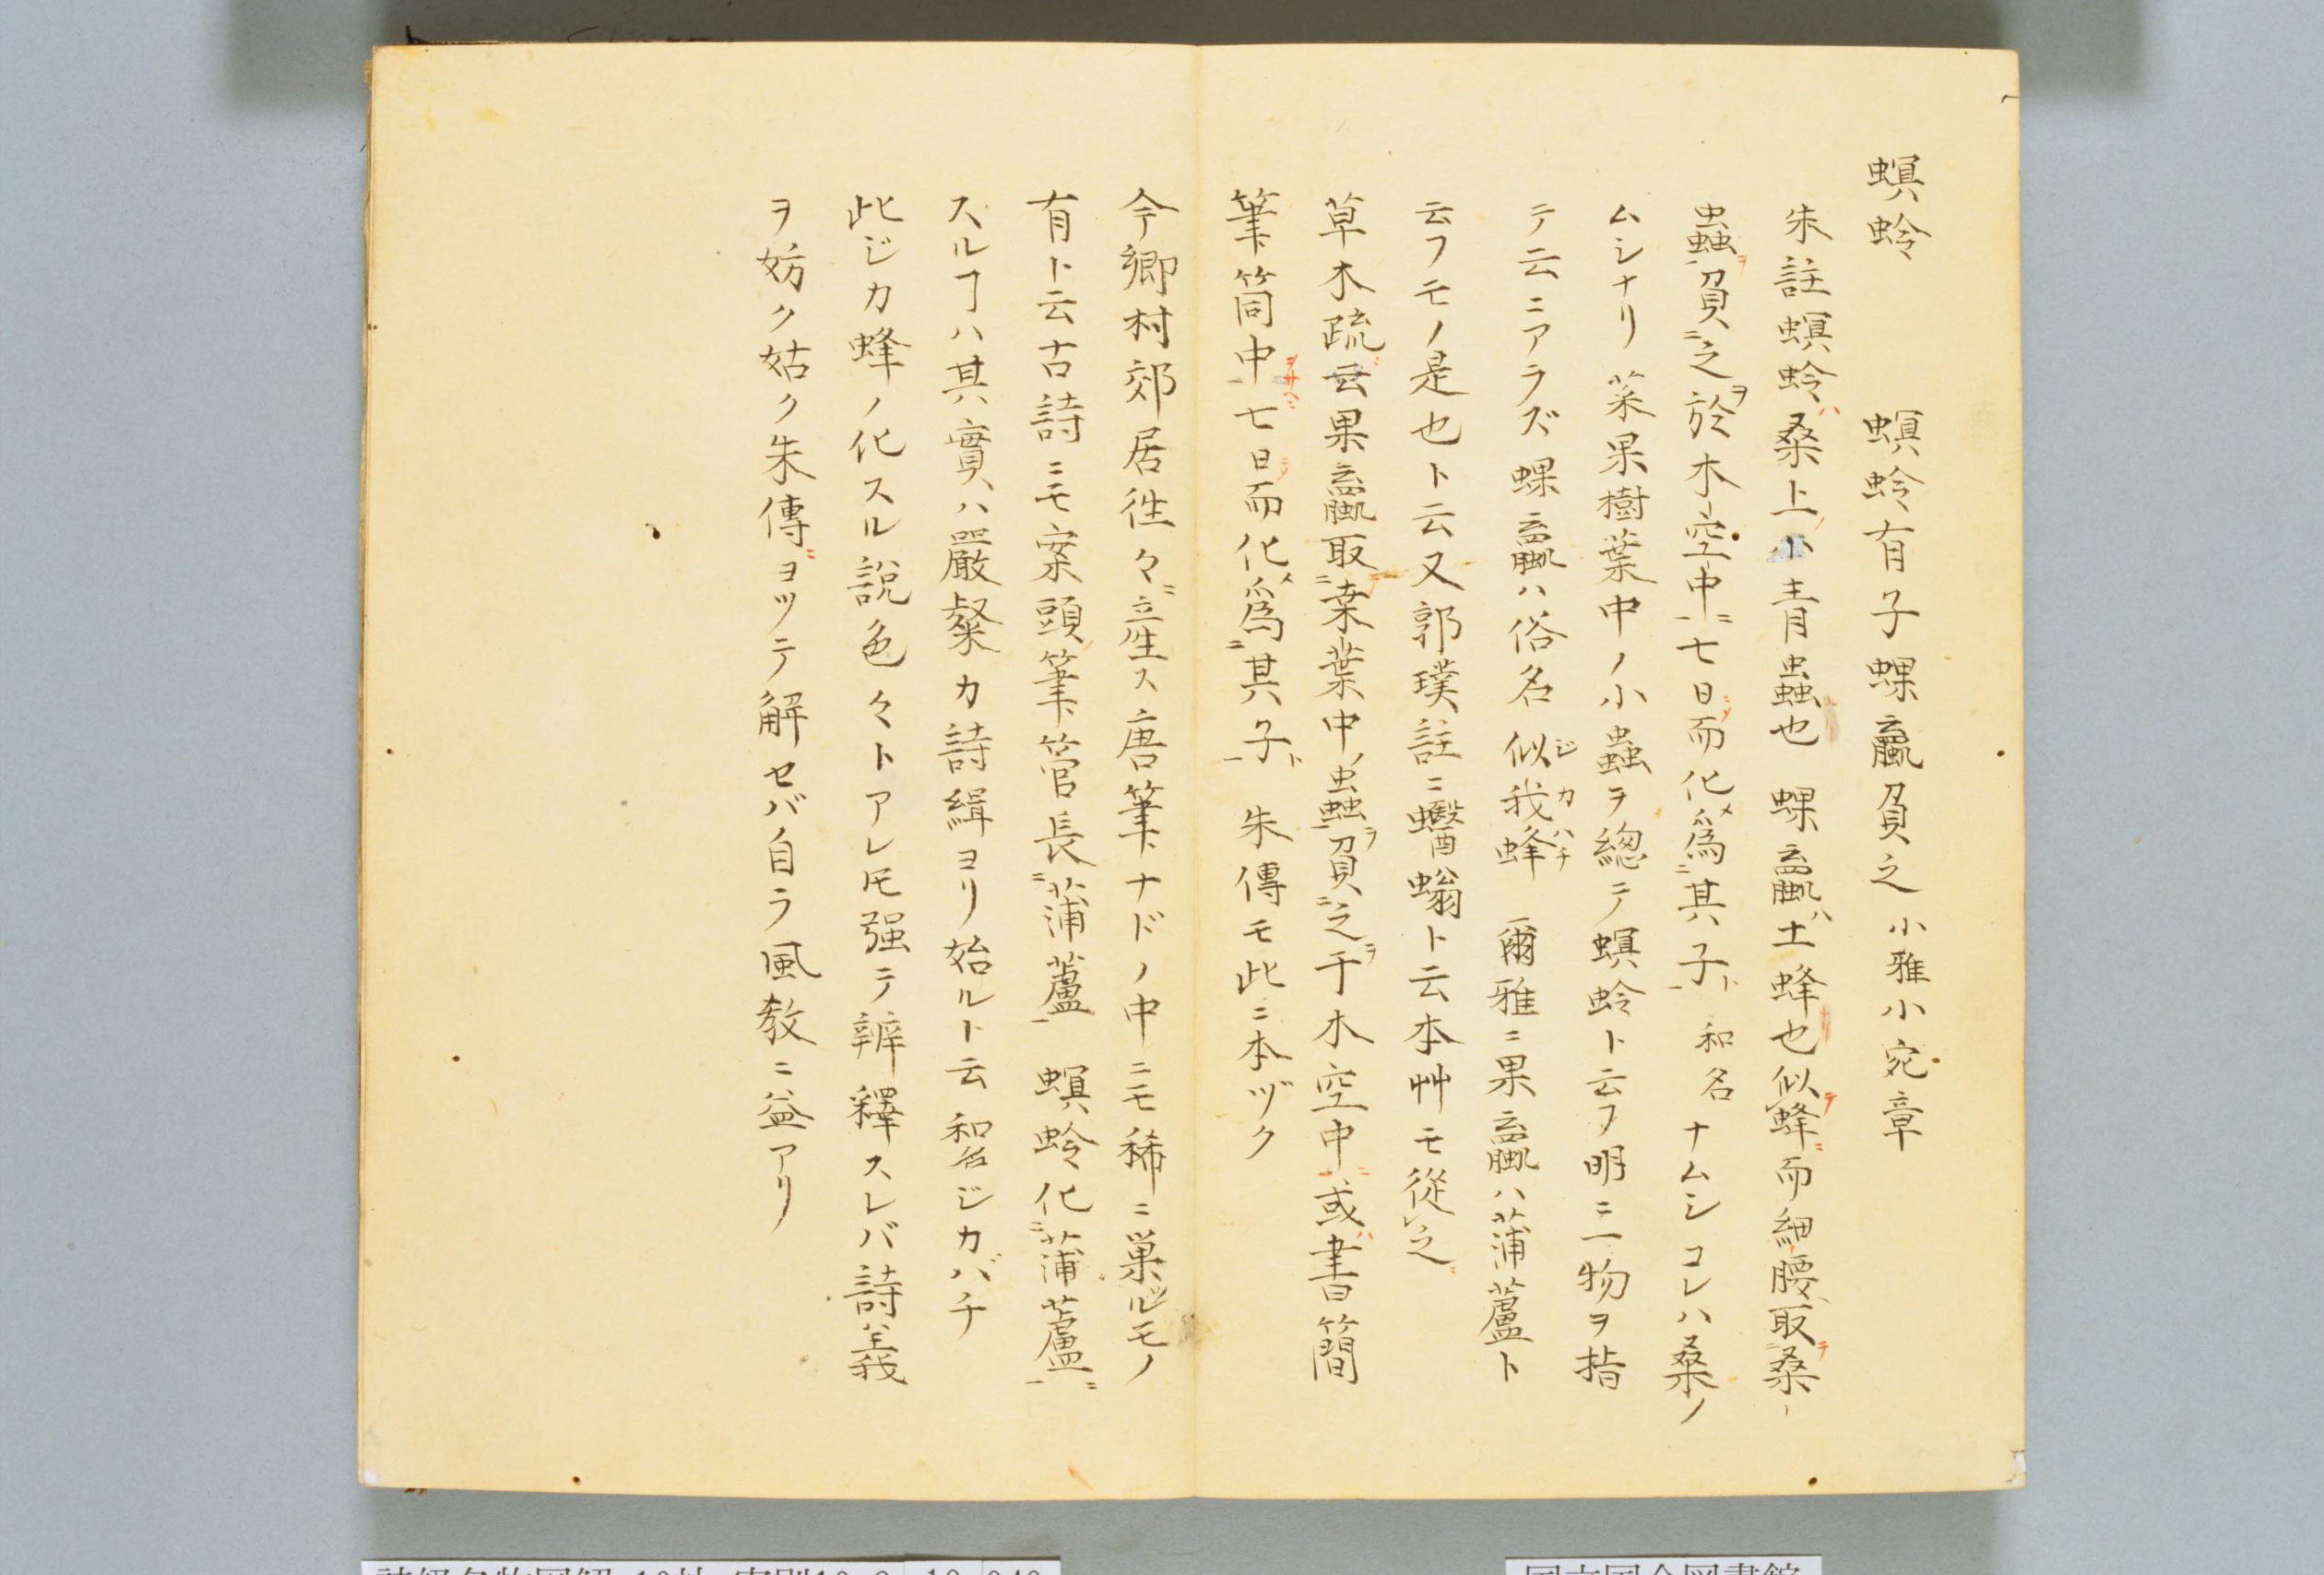 螟蛉　螟蛉有子蜾蠃負之 小雅小宛章
朱註螟蛉ハ桑上ノ小青蟲也 蜾蠃ハ土蜂也似テ蜂ニ而細腰取テ桑ノ
蟲ヲ負ニ之ヲ於木空中ニ七日ニ〆而化〆爲ニ其子ト 和名ナムシコレハ桑ノ
ムシナリ 菜果樹葉中ノ小蟲ヲ總テ螟蛉ト云フ明ニ一物ヲ指
テ云ニアラズ 蜾蠃ハ俗名似我蜂ジカハチ 爾雅ニ果蠃ハ蒲蘆ト
云フモノ是也ト云又郭璞註ニ蠮螉ト云本艸モ從之
草木疏ニ云果蠃取テ桒葉中ノ蟲ヲ負之ヲ于木空中ニ或ハ書簡
筆筒中 七日ニ而化〆爲ニ其子ト 朱傳モ此ニ本ヅク
今郷村郊居徃々ニ産ス唐筆ナドノ中ニモ稀ニ巣ルモノ
有ト云古詩ニモ案頭筆管長ニ蒲蘆 螟蛉化ニ蒲蘆ニ
スルヿハ其實ハ嚴粲カ詩緝ヨリ始ルト云 和名ジカバチ
此ジカ蜂ノ化スル説色々トアレ𪜈强テ辨釋スレバ詩ノ義
ヲ妨ク姑ク朱傳ニヨツテ解セバ自ラ風敎ニ益アリ
国立国会図書館